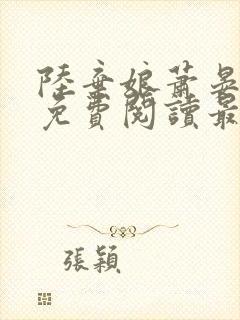 陸棄娘蕭晏
免費閱讀最
張穎